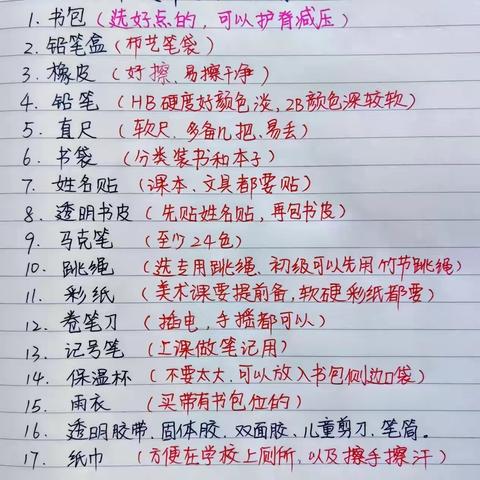 1. 书包（选好点的，可以护脊减压）
2. 铅笔盒（布艺笔袋）
3. 橡皮（好擦、易擦干净）
4. 铅笔（HB硬度好颜色淡，2B颜色深较软）
5. 直尺（软尺、多备几把、易丢）
6. 书袋（分类装书和本子）
7. 姓名贴（课本、文具都要贴）
8. 透明书皮（先贴姓名贴，再包书皮）
9. 马克笔（至少24色）
10. 跳绳（选专用跳绳、初级可以先用竹节跳绳）
11. 彩纸（美术课要提前备，软硬彩纸都要）
12. 卷笔刀（插电，手摇都可以）
13. 记号笔（上课做笔记用）
14. 保温杯（不要太大，可以放入书包侧边口袋）
15. 雨衣（买带有书包位的）
16. 透明胶带、固体胶、双面胶、儿童剪刀、笔筒。
17. 纸巾（方便在学校上厕所，以及擦手擦汗）